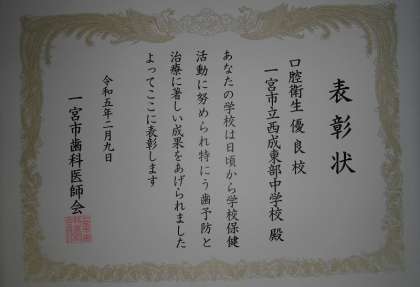 表彰状
口腔衛生 優良校
一宮市立西成東部中学校 殿
あなたの学校は日頃から学校保健
活動に努められ特にう歯予防と
治療に著しい成果をあげられました
よってここに表彰します
令和五年二月九日
一宮市歯科医師会